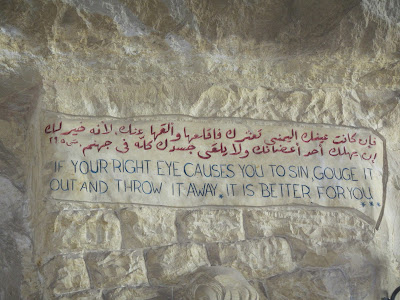 فإن كانت عينك اليمنى تعثرك فاقلعها وألقها عنك. لأنه خير لك
إن يهلك أحد أعضائك ولا يلقى جسدك كله فى جهنم.
IF YOUR RIGHT EYE CAUSES YOU TO SIN, GOUGE IT
OUT AND THROW IT AWAY. IT IS BETTER FOR YOU...